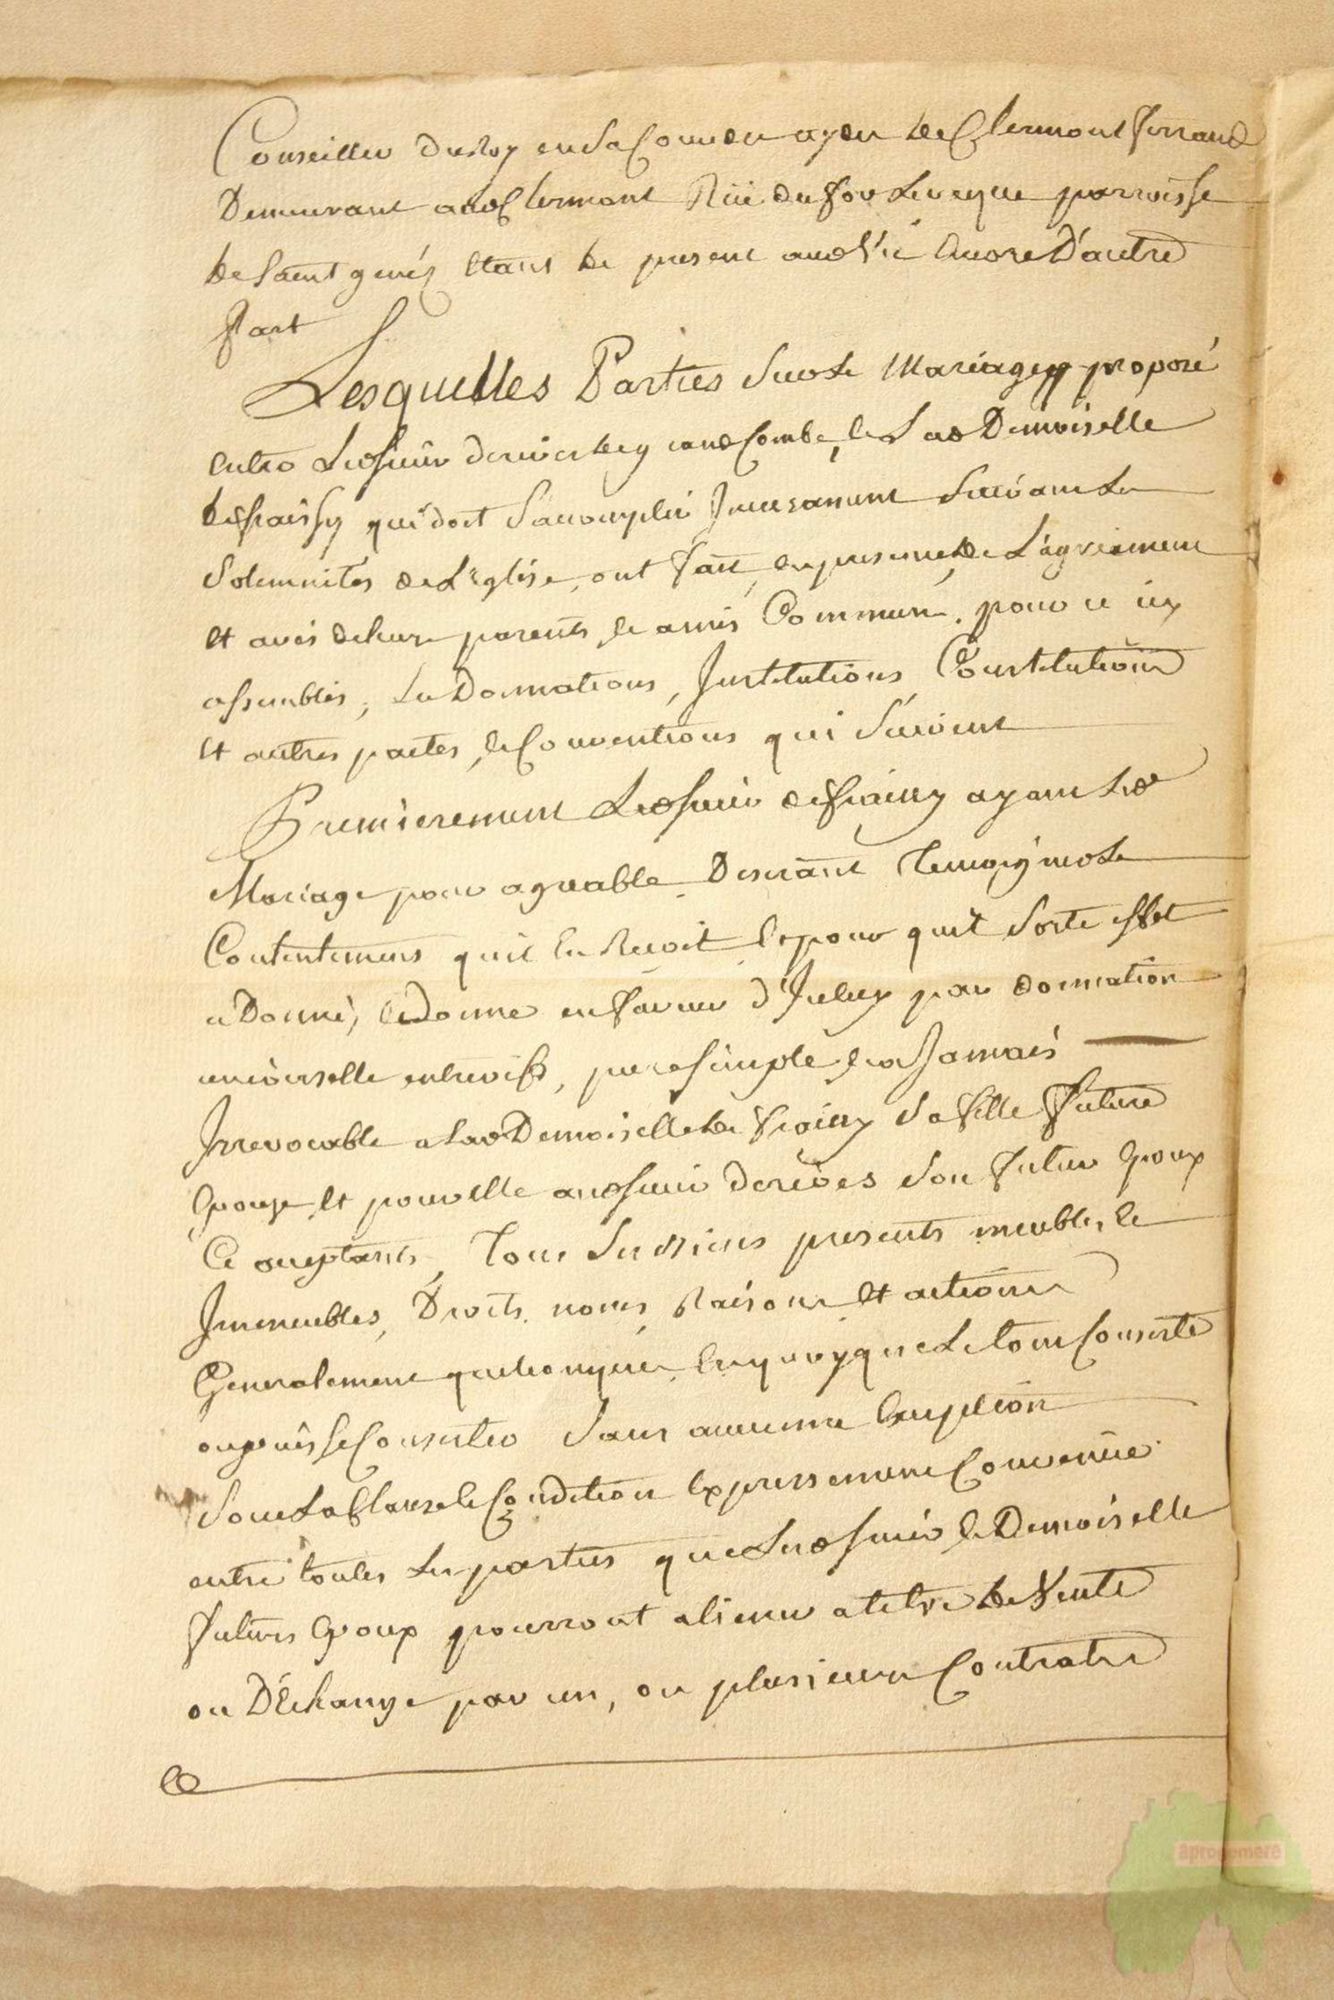 Conseiller du Roy en sa Cour des aydes de Clermont ferrand
Demeurant aud Clermont Rüe du for Leveque parroisse
de Saint genés Etant de present aud Vic Encore D'autre
Part
Lesquelles Parties sur le Mariage proposé
entre Led sieur de combe, et Lad Demoiselle
de fraissy qui doit S'accomplir Incessamment Suivant Les
Solemnités de L'Eglise, ont fait, en presence, de L'agreement
et avis de leurs parents, et amis Communs, pour ce icy
assemblés, Les Donnations, Institutions, Constitutions
et autres pactes, et Conventions qui Suivent
Premierement Led sieur de fraissy ayant Led
Mariage pour agreable Desirant Temoigner Le
Contentement qu'il En Recoit Et pour qu'il Sorte effet
a Donné, et donne en faveur d'Iceluy par donnation
universelle entrevifs, pure simple et a Jamais
Irrevocable a Lad Demoiselle de fraissy Sa fille future
Epouze et pour elle aud sieur derives Son futur Epoux
Ce acceptants, Tous Ses biens presents meubles, et
Immeubles, Droits, noms, Raisons et actions
Generalement quelconques, En quoy que Le tout Consiste
ou puisse Consister Sans aucune Exception
Sous La Clause et Condition Expressement Convenüe
entre toutes Les parties que Led sieur et Demoiselle
futurs Epoux pourront aliener a titre de Vente
ou D'Echange par un, ou plusieurs Contrats
aprogemere